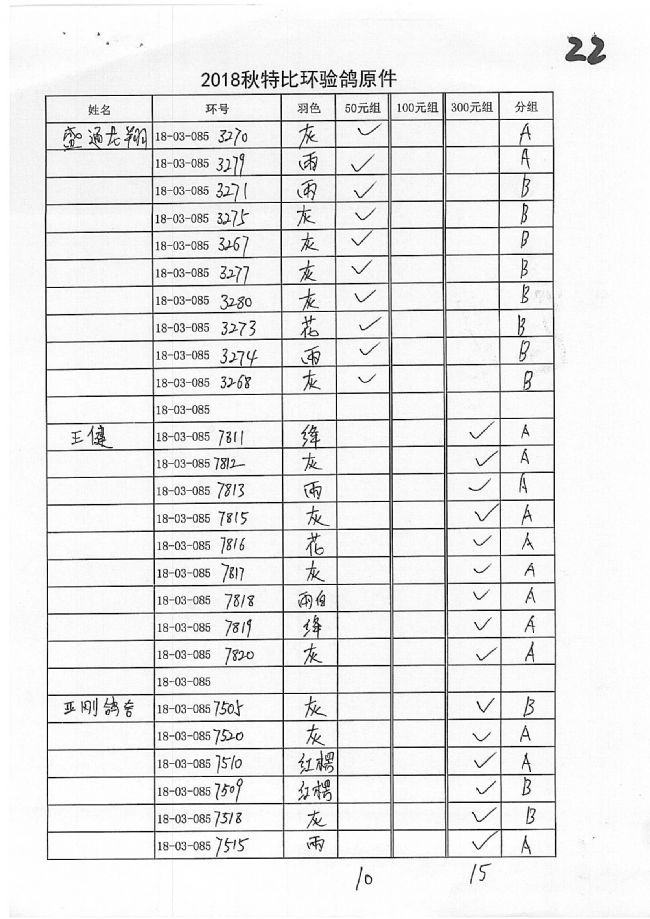 22
2018秋特比环验鸽原件
姓名 环号 羽色 50元组 100元组 300元组 分组
盛通龙翔 18-03-085 3270 灰 ✓ A
18-03-085 3279 雨 ✓ A
18-03-085 3271 雨 ✓ B
18-03-085 3275 灰 ✓ B
18-03-085 3267 灰 ✓ B
18-03-085 3277 灰 ✓ B
18-03-085 3280 灰 ✓ B
18-03-085 3273 花 ✓ B
18-03-085 3274 雨 ✓ B
18-03-085 3268 灰 ✓ B
18-03-085
王健 18-03-085 7811 绛 ✓ A
18-03-085 7812 灰 ✓ A
18-03-085 7813 雨 ✓ A
18-03-085 7815 灰 ✓ A
18-03-085 7816 花 ✓ A
18-03-085 7817 灰 ✓ A
18-03-085 7818 雨白 ✓ A
18-03-085 7819 绛 ✓ A
18-03-085 7820 灰 ✓ A
18-03-085
亚刚鸽舍 18-03-085 7505 灰 ✓ B
18-03-085 7520 灰 ✓ A
18-03-085 7510 红楞 ✓ A
18-03-085 7509 红楞 ✓ B
18-03-085 7518 灰 ✓ B
18-03-085 7515 雨 ✓ A
10 15